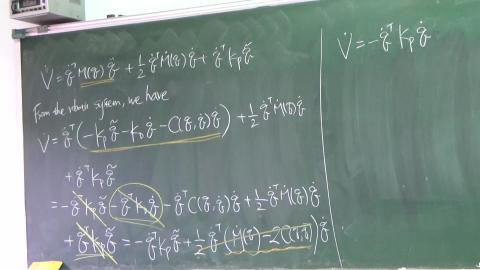 V̇ = q̇ᵀ M(q) q̈ + ½ q̇ᵀ Ṁ(q) q̇ + q̇ᵀ Kp q̃
From the robotic system, we have
V̇ = q̇ᵀ (-Kp q̃ - KD q̇ - C(q, q̇) q̇) + ½ q̇ᵀ Ṁ(q) q̇
+ q̇ᵀ Kp q̃
= -q̇ᵀ Kp q̃ - q̇ᵀ KD q̇ - q̇ᵀ C(q, q̇) q̇ + ½ q̇ᵀ Ṁ(q) q̇
+ q̇ᵀ Kp q̃ = -q̇ᵀ Kp q̃ + ½ q̇ᵀ (Ṁ(q) - 2C(q, q̇)) q̇
V̇ = -q̇ᵀ Kp q̇